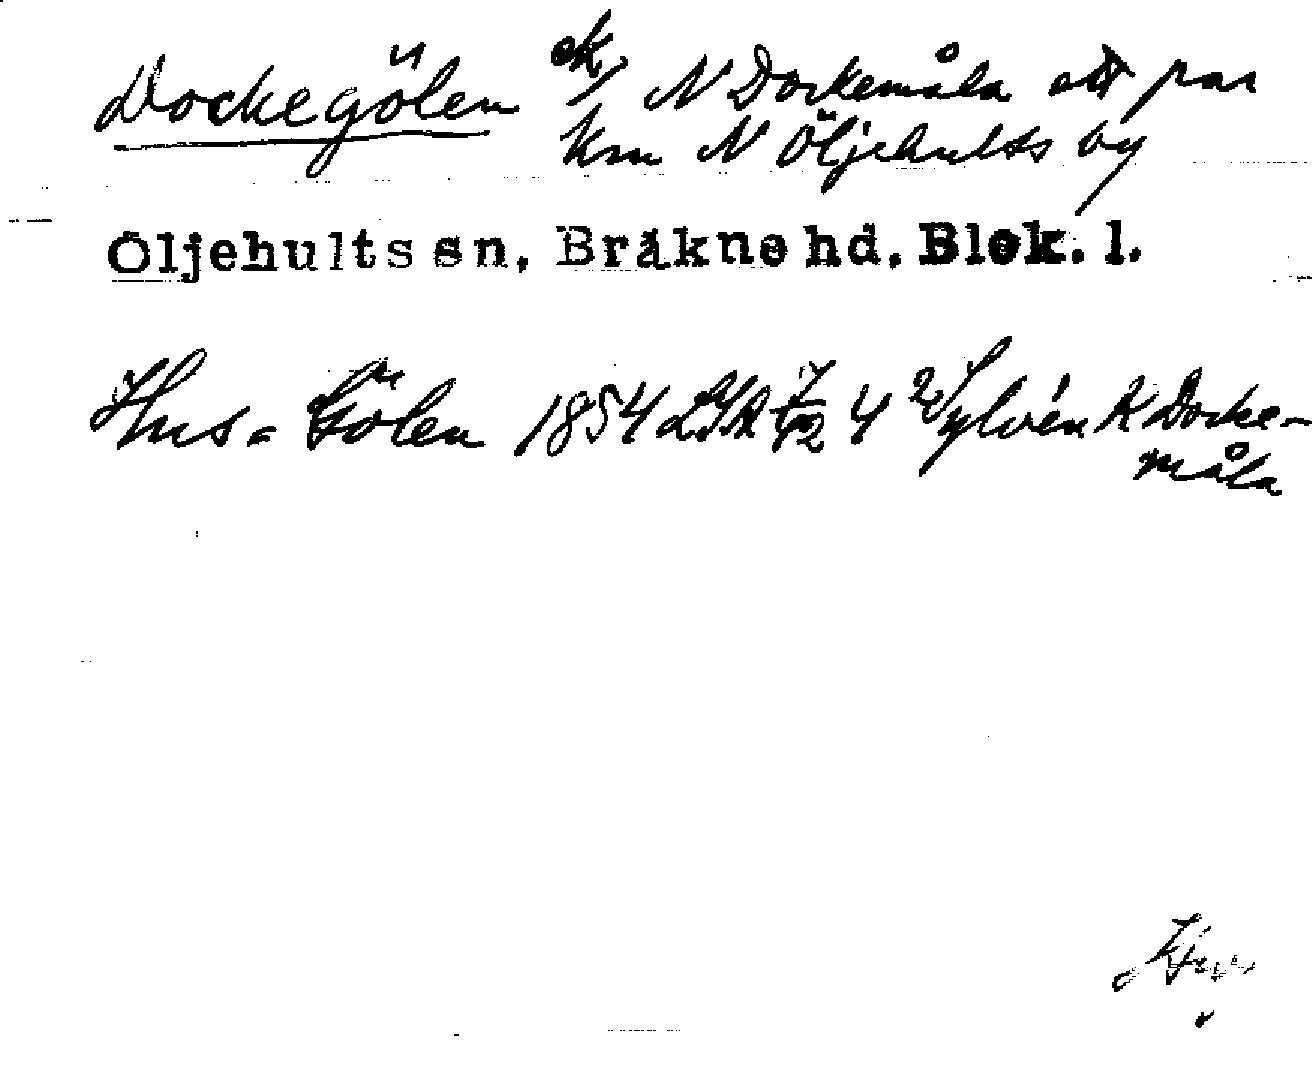 Dockegölen ek/ N Dockemåla ett par
km N Öljehults by
Öljehults sn. Bräkne hd. Blek. l.
Hus = Gölen 1854 LSA 7/2 4 Sylvén K Docke-
måla